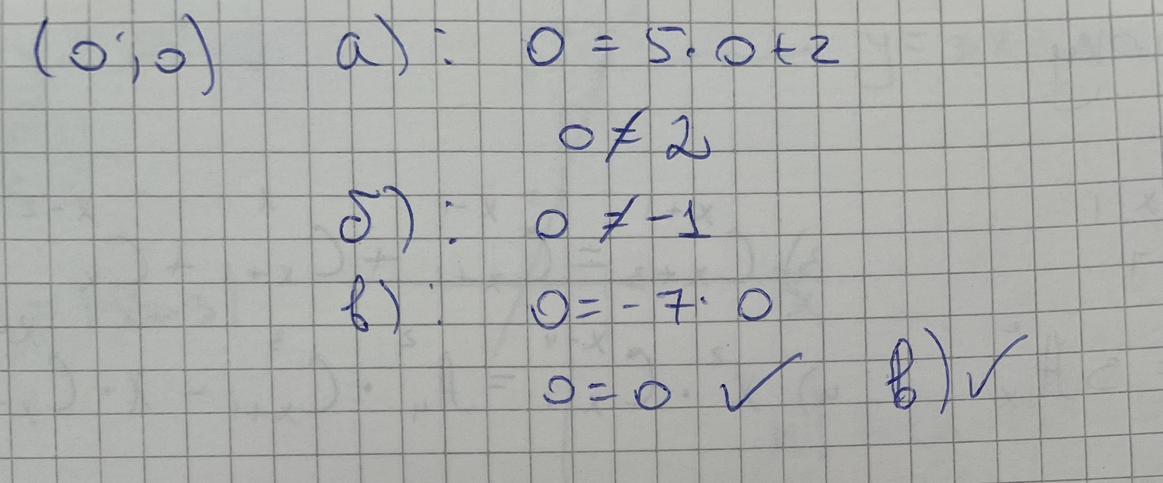 (0;0) а): 0 = 5·0+2
0 ≠ 2
б): 0 ≠ -1
в): 0 = -7·0
0 = 0 ✓ в) ✓